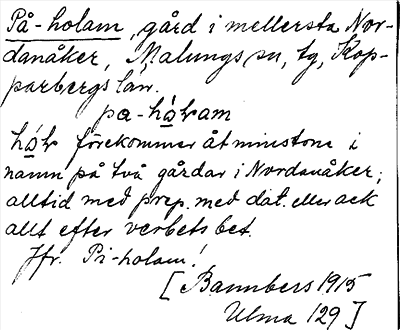 På-holam, gård i mellersta Nor-
danåker, Malungs sn, tg, Kop-
parbergs län.
pa-hóləam
hól förekommer åtminstone i
namn på två gårdar i Nordanåker;
alltid med prep. med dat. eller ack
allt efter verbets bet.
Jfr. Pi-holam!
[Bannbers 1915
Ulma 129]